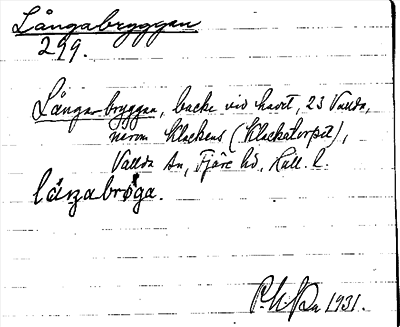 Långabryggan
299.
Långabryggan, backe vid havet, 23 Vallda,
norm Klockens (Klockatorpet),
Vallda sn, Fjäre hd, Hall. l.
låŋabrøga.
1931.